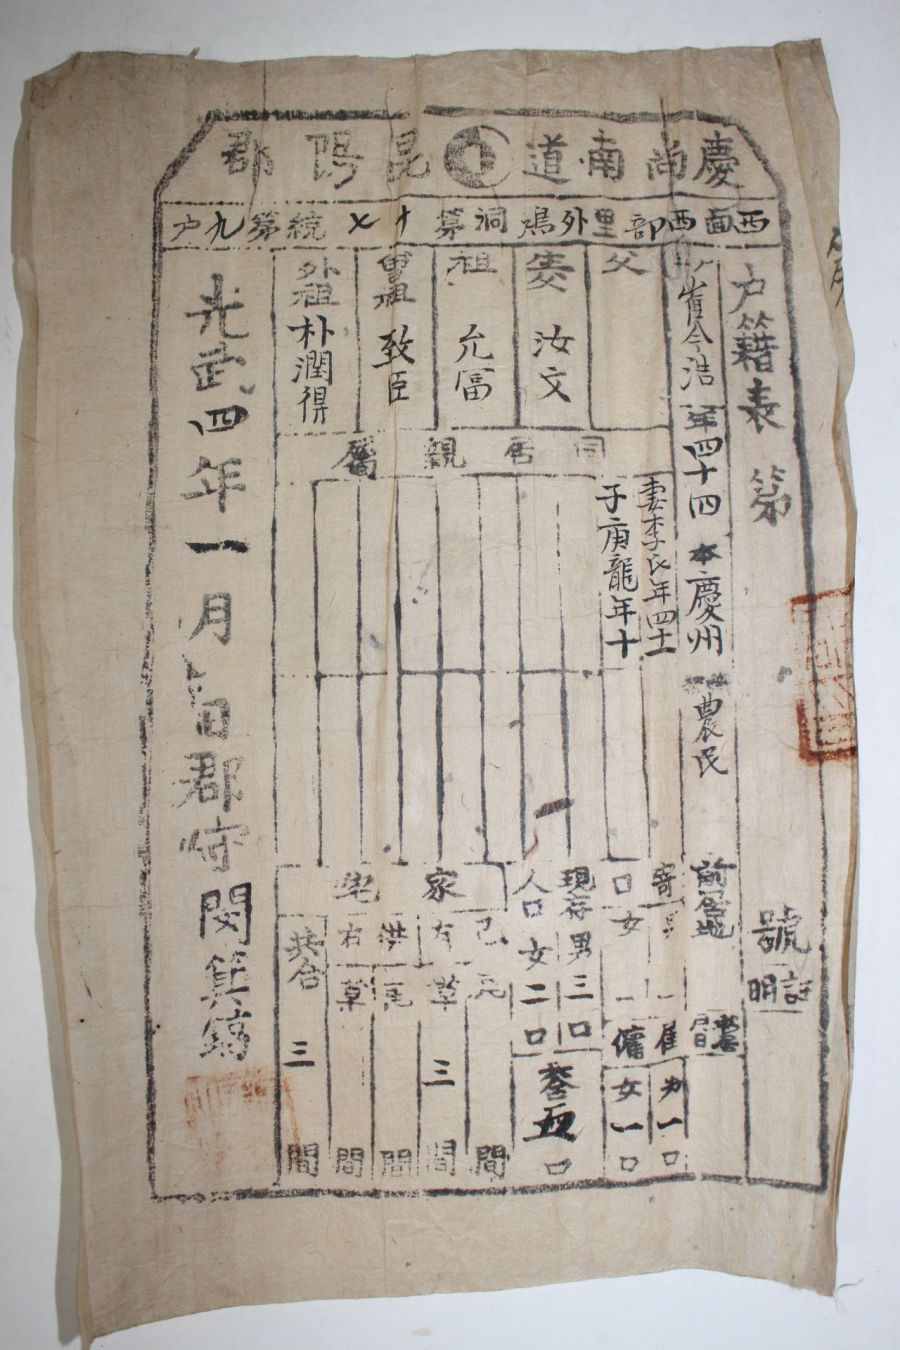 慶尚南道昆陽郡
西面西部里外鳩洞第十七統第九戶
戶籍表 第 號
証明
崔今浩 年四十四 本慶州 農民
前居地
父
養汝文
祖允冨
曾祖致臣
外祖朴潤得
同居親屬
妻李氏年四十一
子庚龍年十
寄口 男一
女一
雇傭 男一口
女一口
現存人口 男三口
女二口
共合五口
家宅
己 瓦 間
有 草 三間
借 瓦 間
有 草 間
共合 三間
光武四年一月 日郡守閔箕鎬